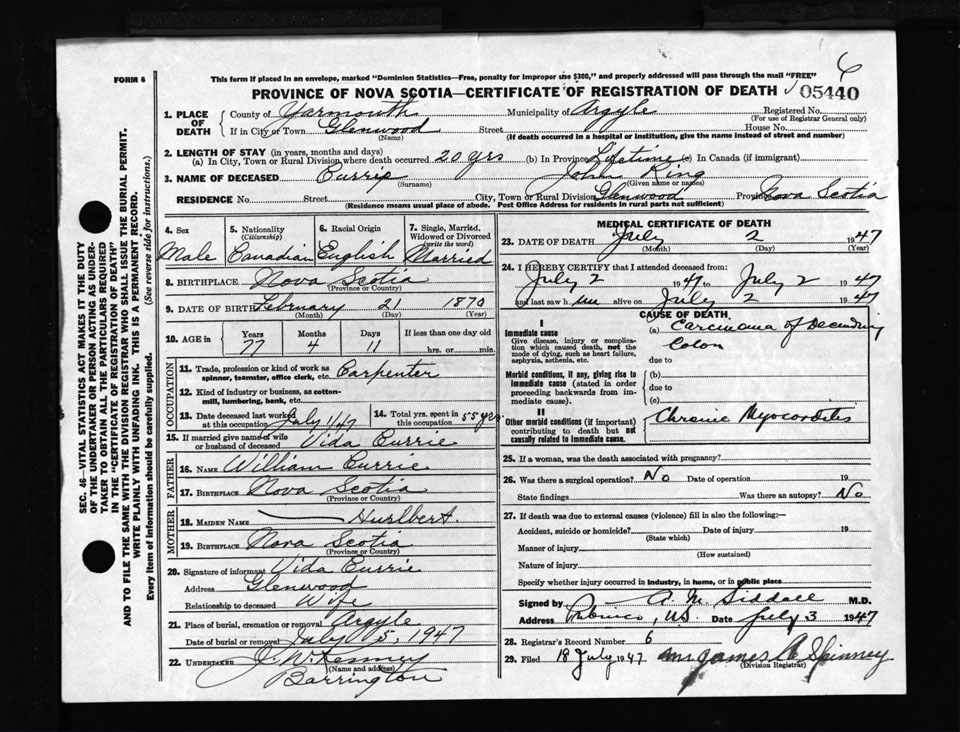 6
FORM 6
This form if placed in an envelope, marked "Dominion Statistics—Free, penalty for improper use $300," and properly addressed will pass through the mail "FREE"
PROVINCE OF NOVA SCOTIA—CERTIFICATE OF REGISTRATION OF DEATH 05440
SEC. 46—VITAL STATISTICS ACT MAKES IT THE DUTY
OF THE UNDERTAKER OR PERSON ACTING AS UNDER-
TAKER TO OBTAIN ALL THE PARTICULARS REQUIRED
IN THE "CERTIFICATE OF REGISTRATION OF DEATH"
AND TO FILE THE SAME WITH THE DIVISION REGISTRAR WHO SHALL ISSUE THE BURIAL PERMIT.
WRITE PLAINLY WITH UNFADING INK. THIS IS A PERMANENT RECORD.
Every item of information should be carefully supplied. (See reverse side for instructions.)
1. PLACE OF DEATH County of Yarmouth Municipality of Argyle Registered No.
(For use of Registrar General only)
If in City or Town Glenwood Street House No.
(Name) (If death occurred in a hospital or institution, give the name instead of street and number)
2. LENGTH OF STAY (in years, months and days)
(a) In City, Town or Rural Division where death occurred 20 yrs (b) In Province Lifetime (c) In Canada (if immigrant)
3. NAME OF DECEASED Currie John King
(Surname) (Given name or names)
RESIDENCE No. Street City, Town or Rural Division Glenwood Province Nova Scotia
(Residence means usual place of abode. Post Office Address for residents in rural parts not sufficient)
4. Sex
Male
5. Nationality
(Citizenship)
Canadian
6. Racial Origin
English
7. Single, Married,
Widowed or Divorced
(write the word)
Married
8. BIRTHPLACE Nova Scotia
(Province or Country)
9. DATE OF BIRTH February 21 1870
(Month) (Day) (Year)
10. AGE in Years Months Days If less than one day old
77 4 11 hrs. or min.
OCCUPATION
11. Trade, profession or kind of work as
spinner, teamster, office clerk, etc. Carpenter
12. Kind of industry or business, as cotton-
mill, lumbering, bank, etc.
13. Date deceased last worked
at this occupation July 1/47
14. Total yrs. spent in
this occupation 55 yrs
15. If married give name of wife
or husband of deceased Vida Currie
FATHER
16. NAME William Currie
17. BIRTHPLACE Nova Scotia
(Province or Country)
MOTHER
18. MAIDEN NAME Hurlbert
19. BIRTHPLACE Nova Scotia
(Province or Country)
20. Signature of informant Vida Currie
Address Glenwood
Relationship to deceased Wife
21. Place of burial, cremation or removal Argyle
Date of burial or removal July 5 1947
22. UNDERTAKER J. McKenney
(Name and address)
Barrington
MEDICAL CERTIFICATE OF DEATH
23. DATE OF DEATH July 2 1947
(Month) (Day) (Year)
24. I HEREBY CERTIFY that I attended deceased from:
July 2 1947 to July 2 1947
and last saw him alive on July 2 1947
CAUSE OF DEATH
I
Immediate cause (a) Carcinoma of Decending
Give disease, injury or complica-
tion which caused death, not the
mode of dying, such as heart failure,
asphyxia, asthenia, etc.
Colon
due to
Morbid conditions, if any, giving rise to
immediate cause (stated in order
proceeding backwards from im-
mediate cause).
(b)
due to
(c)
II
Other morbid conditions (if important)
contributing to death but not
causally related to immediate cause.
Chronic Myocarditis
25. If a woman, was the death associated with pregnancy?
26. Was there a surgical operation? No Date of operation 19
State findings Was there an autopsy? No
27. If death was due to external causes (violence) fill in also the following:—
Accident, suicide or homicide? Date of injury 19
(State which)
Manner of injury
(How sustained)
Nature of injury
Specify whether injury occurred in industry, in home, or in public place
Signed by A. M. Siddall M.D.
Address Pubnico, N.S. Date July 3 1947
28. Registrar's Record Number 6
29. Filed 18 July 1947 James A Spinney
(Division Registrar)